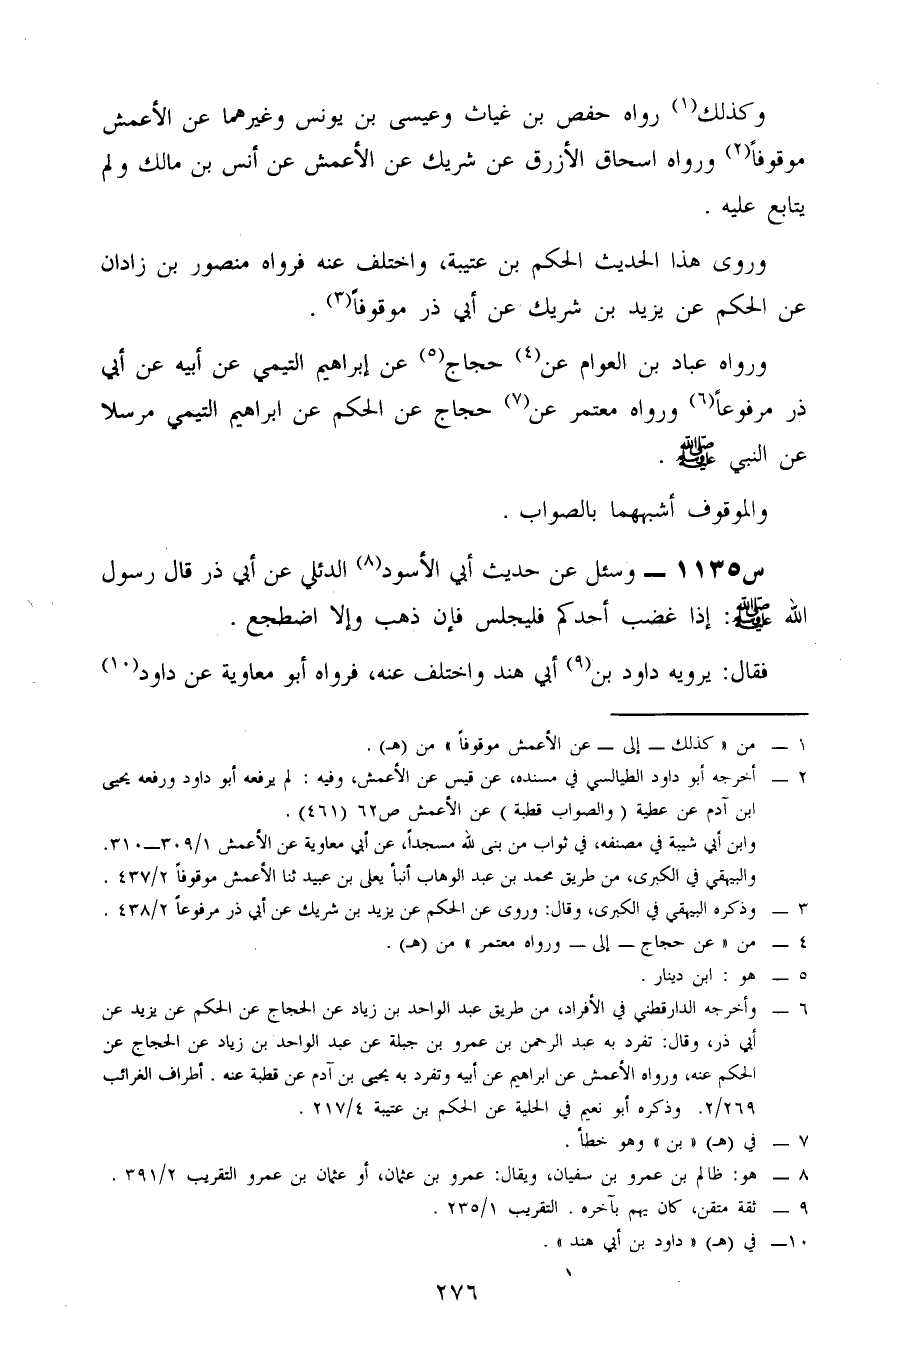 وكذلك(١) رواه حفص بن غياث وعيسى بن يونس وغيرهما عن الأعمش
موقوفاً(٢) ورواه اسحاق الأزرق عن شريك عن الأعمش عن أنس بن مالك ولم
يتابع عليه .
وروى هذا الحديث الحكم بن عتيبة، واختلف عنه فرواه منصور بن زادان
عن الحكم عن يزيد بن شريك عن أبي ذر موقوفاً(٣) .
ورواه عباد بن العوام عن(٤) حجاج(٥) عن إبراهيم التيمي عن أبيه عن أبي
ذر مرفوعاً(٦) ورواه معتمر عن(٧) حجاج عن الحكم عن ابراهيم التيمي مرسلا
عن النبي ﷺ .
والموقوف أشبههما بالصواب .
س١١٣٥ — وسئل عن حديث أبي الأسود(٨) الدئلي عن أبي ذر قال رسول
الله ﷺ: إذا غضب أحدكم فليجلس فإن ذهب وإلا اضطجع .
فقال: يرويه داود بن(٩) أبي هند واختلف عنه، فرواه أبو معاوية عن داود(١٠)
١ — من « كذلك — إلى — عن الأعمش موقوفاً » من (هـ) .
٢ — أخرجه أبو داود الطيالسي في مسنده، عن قيس عن الأعمش، وفيه : لم يرفعه أبو داود ورفعه يحيى
ابن آدم عن عطية ( والصواب قطبة ) عن الأعمش ص٦٢ (٤٦١) .
وابن أبي شيبة في مصنفه، في ثواب من بنى لله مسجداً، عن أبي معاوية عن الأعمش ٣٠٩/١—٣١٠.
والبيهقي في الكبرى، من طريق محمد بن عبد الوهاب أنبأ يعلى بن عبيد ثنا الأعمش موقوفاً ٤٣٧/٢ .
٣ — وذكره البيهقي في الكبرى، وقال: وروى عن الحكم عن يزيد بن شريك عن أبي ذر مرفوعاً ٤٣٨/٢ .
٤ — من « عن حجاج — إلى — ورواه معتمر » من (هـ) .
٥ — هو : ابن دينار .
٦ — وأخرجه الدارقطني في الأفراد، من طريق عبد الواحد بن زياد عن الحجاج عن الحكم عن يزيد عن
أبي ذر، وقال: تفرد به عبد الرحمن بن عمرو بن جبلة عن عبد الواحد بن زياد عن الحجاج عن
الحكم عنه، ورواه الأعمش عن ابراهيم عن أبيه وتفرد به يحيى بن آدم عن قطبة عنه . أطراف الغرائب
٢/٢٦٩. وذكره أبو نعيم في الحلية عن الحكم بن عتيبة ٢١٧/٤ .
٧ — في (هـ) « بن » وهو خطأ .
٨ — هو: ظالم بن عمرو بن سفيان، ويقال: عمرو بن عثمان، أو عثمان بن عمرو التقريب ٣٩١/٢ .
٩ — ثقة متقن، كان يهم بآخره . التقريب ٢٣٥/١ .
١٠— في (هـ) « داود بن أبي هند » .
٢٧٦